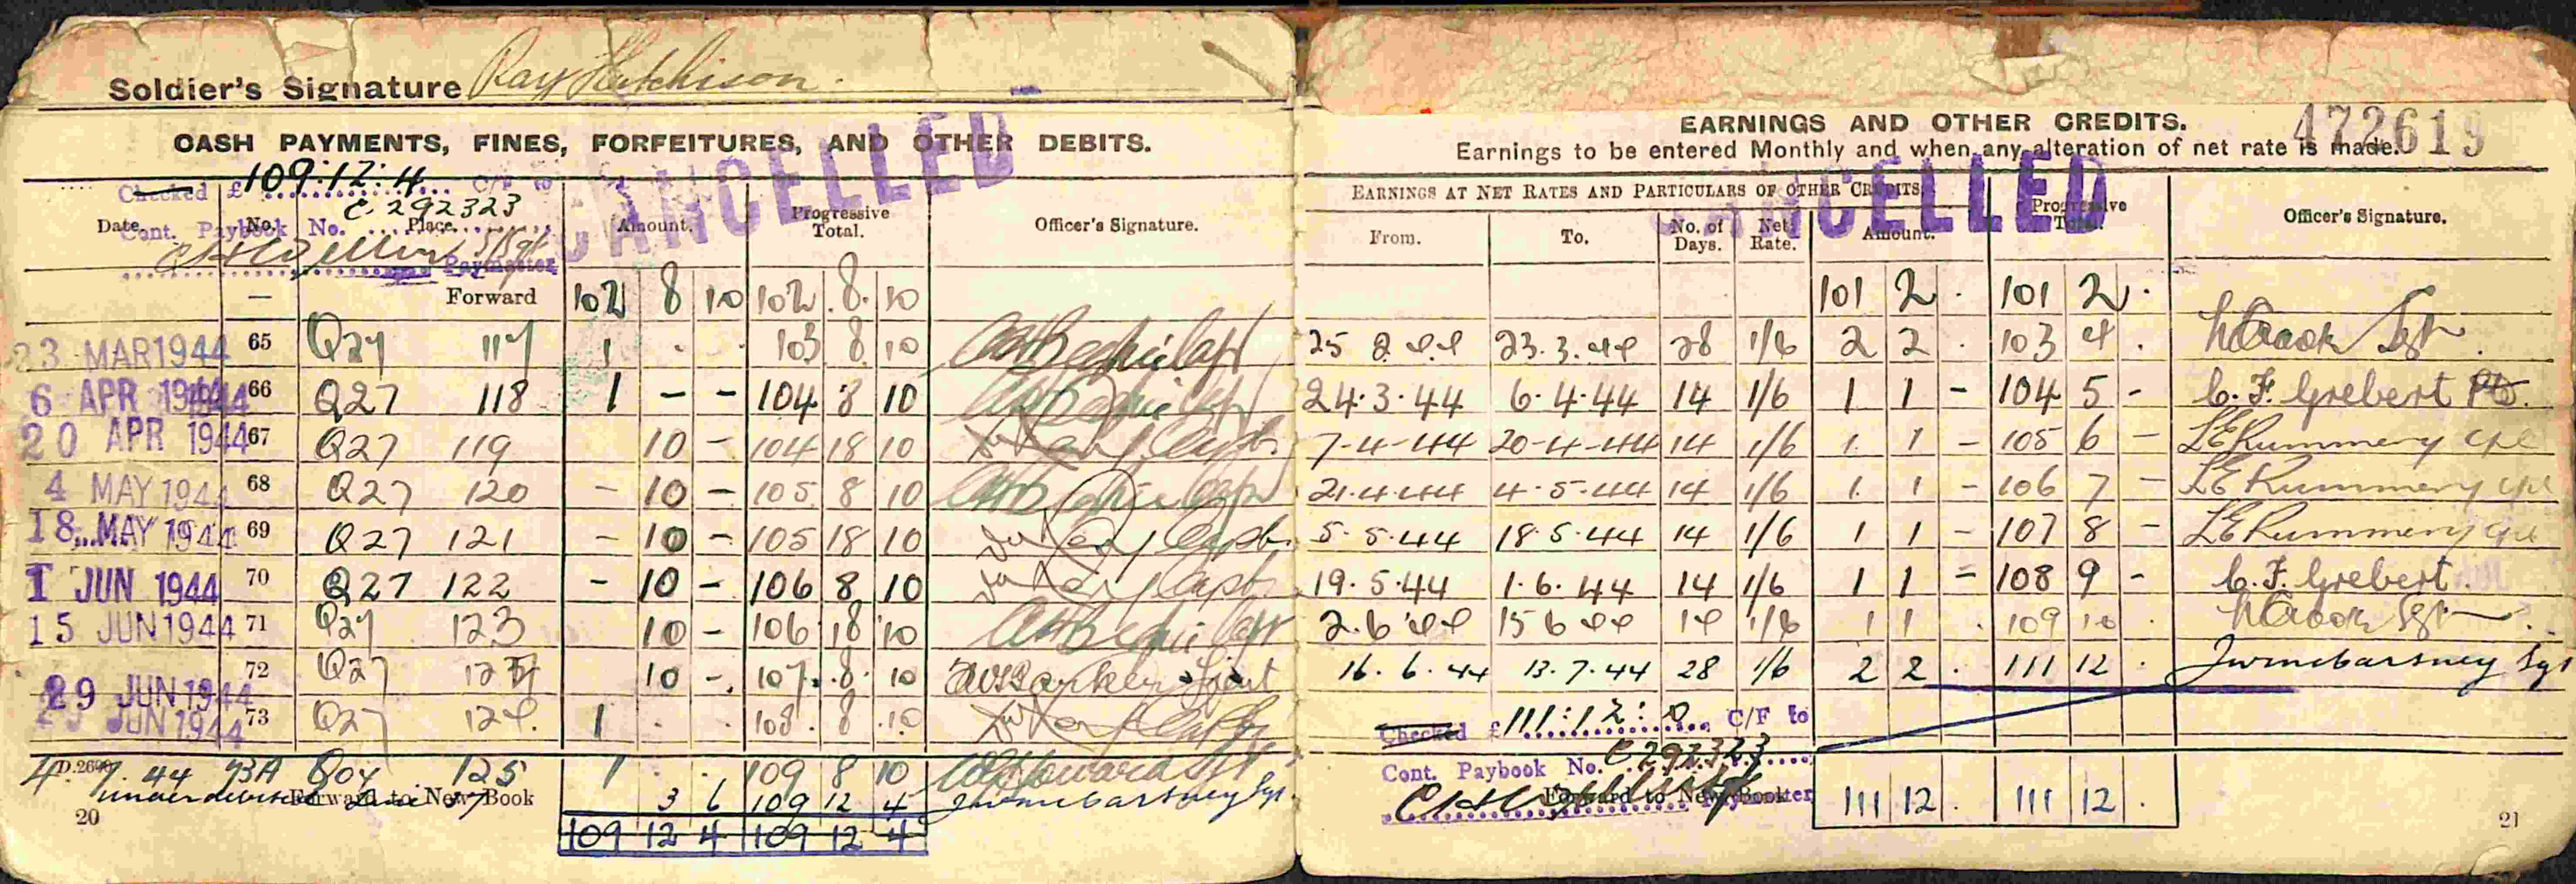 Soldier's Signature Ray Hutchison.
CASH PAYMENTS, FINES, FORFEITURES, AND OTHER DEBITS.
CANCELLED
Checked £109:12:4 C/F to
Cont. Paybook No. C 292323
Paymaster
Date. No. Place. Amount. Progressive Total. Officer's Signature.
— Forward 102 8 10 102 8 10
23 MAR 1944 65 Q27 117 1 . . 103 8 10
6 APR 1944 66 Q27 118 1 - - 104 8 10
20 APR 1944 67 Q27 119 10 - 104 18 10
4 MAY 1944 68 Q27 120 - 10 - 105 8 10
18 MAY 1944 69 Q27 121 - 10 - 105 18 10
1 JUN 1944 70 Q27 122 - 10 - 106 8 10
15 JUN 1944 71 Q27 123 10 - 106 18 10
29 JUN 1944 72 Q27 10 - 107 8 10
29 JUN 1944 73 Q27 124. 1 . . 108 8 10
D.2690
4 7. 44 73A 125 1 . . 109 8 10
Forward to New Book 3 6 109 12 4
109 12 4 109 12 4
20
EARNINGS AND OTHER CREDITS.
472619
Earnings to be entered Monthly and when any alteration of net rate is made.
CANCELLED
EARNINGS AT NET RATES AND PARTICULARS OF OTHER CREDITS. Progressive Total. Officer's Signature.
From. To. No. of Days. Net Rate. Amount.
101 2 . 101 2 .
25 2.44 23.3.44 28 1/6 2 2 . 103 4 . Sgt
24.3.44 6.4.44 14 1/6 1 1 - 104 5 - C. F. Grebert
7-4-44 20-4-44 14 1/6 1 1 - 105 6 - LE Rummery Cpl
21.4.44 4.5.44 14 1/6 1 1 - 106 7 - LE Rummery Cpl
5.5.44 18.5.44 14 1/6 1 1 - 107 8 - LE Rummery Cpl
19.5.44 1.6.44 14 1/6 1 1 - 108 9 - C. F. Grebert.
2.6 44 15 6 44 14 1/6 1 1 . 109 10 . Sgt
16.6.44 13.7.44 28 1/6 2 2 . 111 12 . Sgt
Checked £111:12:0 C/F to
Cont. Paybook No. C 292323
Forward to New Book 111 12 . 111 12 .
21